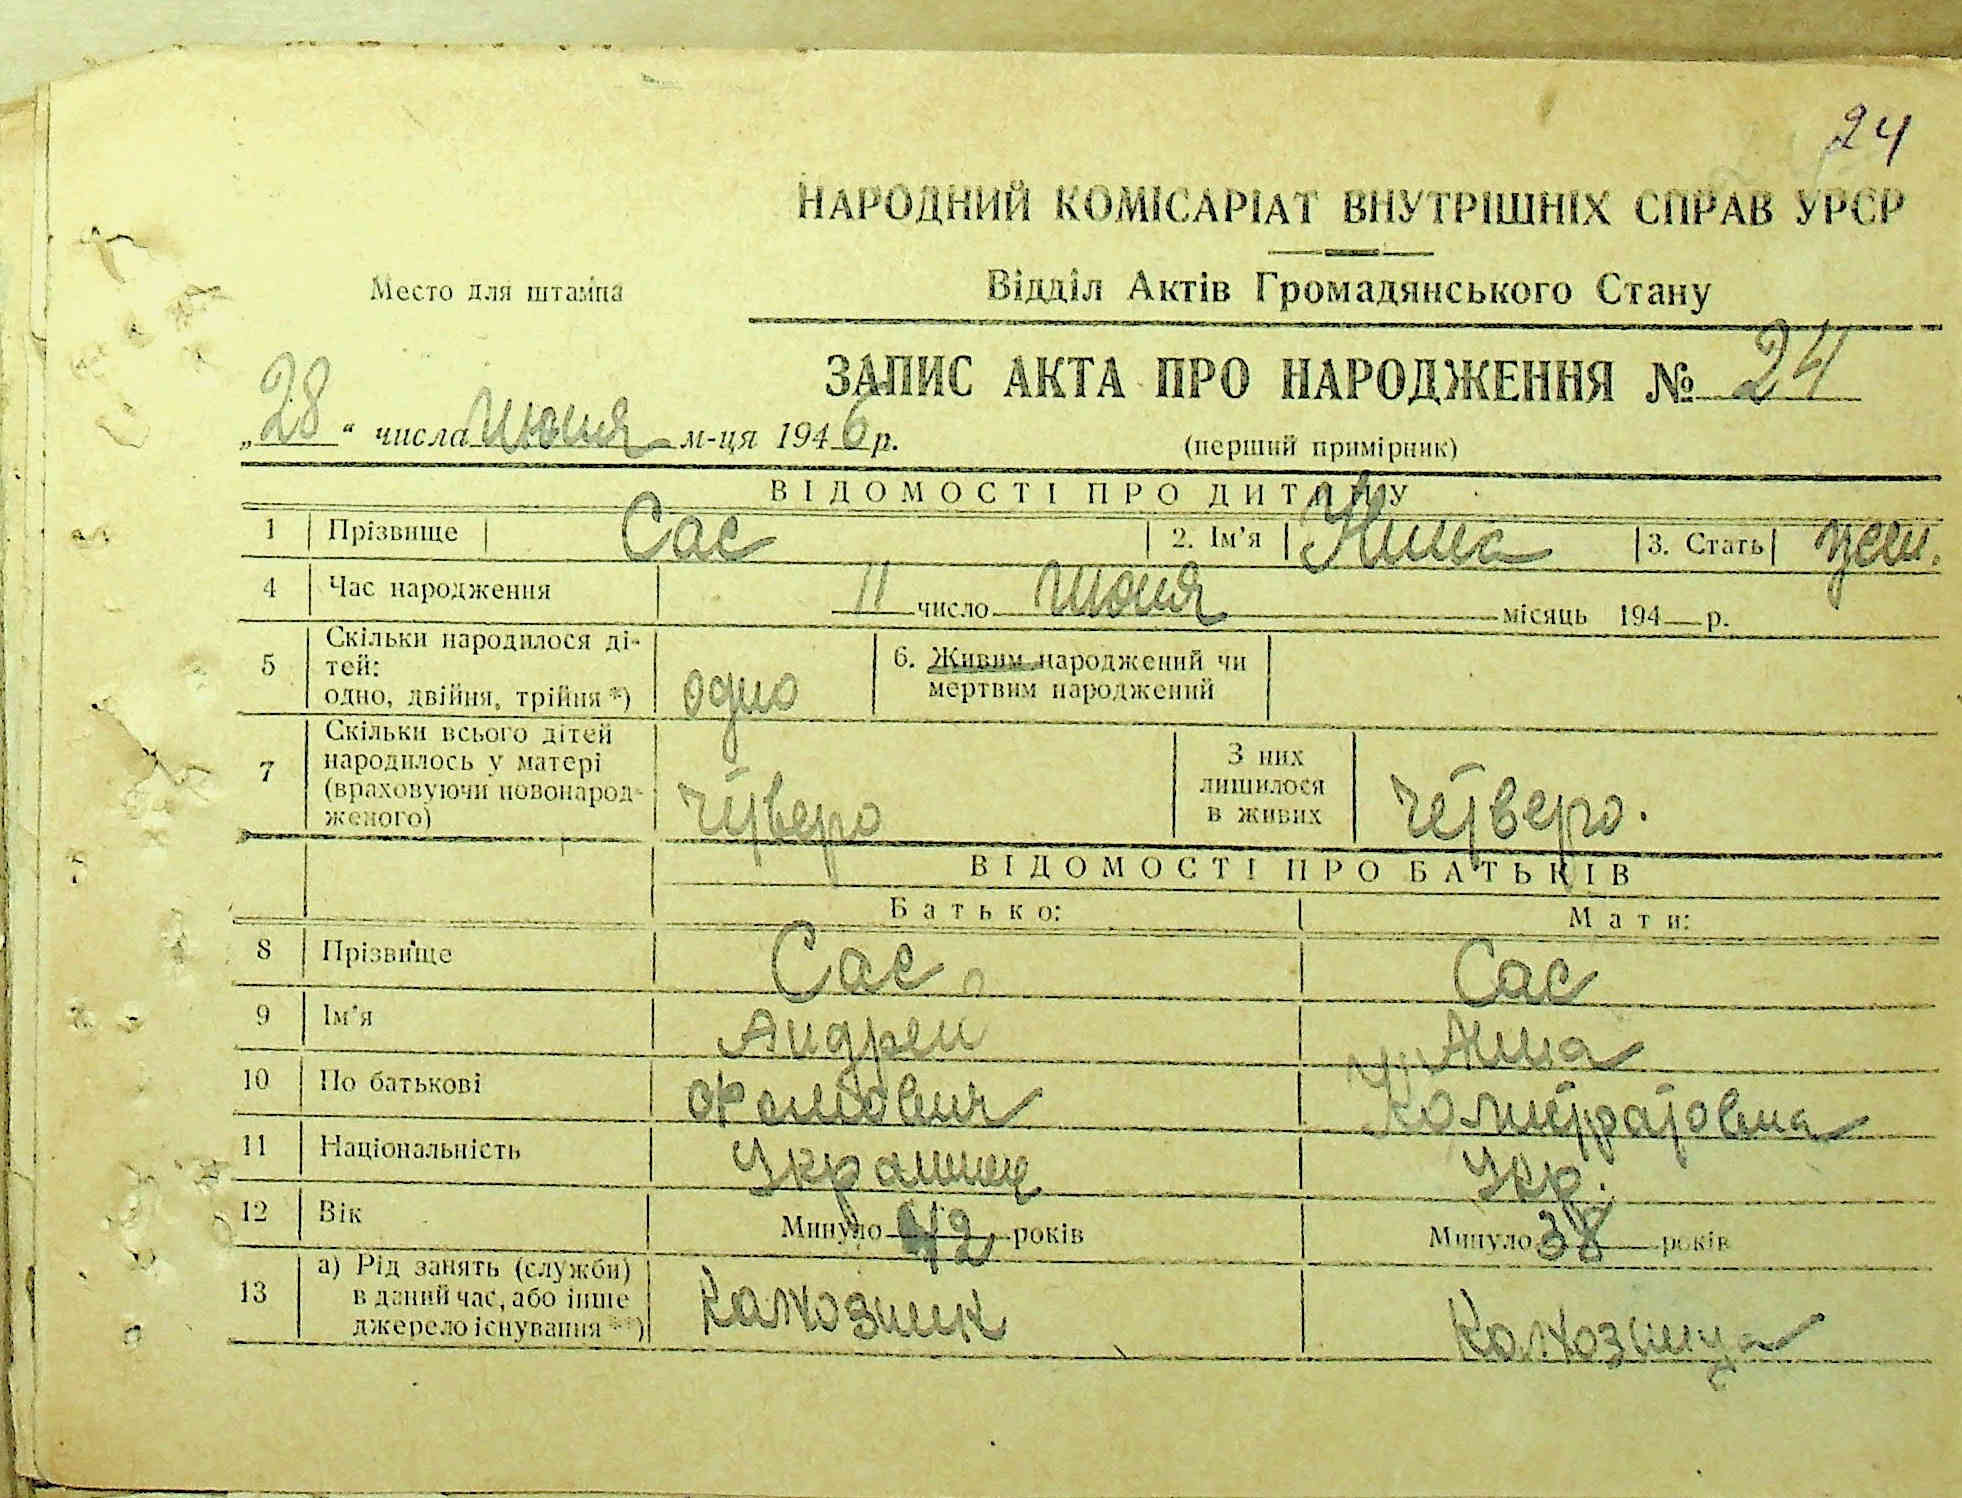 24
НАРОДНИЙ КОМІСАРІАТ ВНУТРІШНІХ СПРАВ УРСР
Место для штампа
Відділ Актів Громадянського Стану
ЗАПИС АКТА ПРО НАРОДЖЕННЯ № 24
„28“ числа июня м-ця 1946 р. (перший примірник)
ВІДОМОСТІ ПРО ДИТИНУ
1 Прізвище Сас 2. Ім'я Нина 3. Стать жен.
4 Час народження 11 число июня місяць 194 р.
5 Скільки народилося ді-
тей:
одно, двійня, трійня *) одно
6. Живим народжений чи
мертвим народжений
7 Скільки всього дітей
народилось у матері
(враховуючи новонарод-
женого) четверо
З них
лишилося
в живих четверо.
ВІДОМОСТІ ПРО БАТЬКІВ
Батько: Мати:
8 Прізвище Сас Сас
9 Ім'я Андреи Анна
10 По батькові
11 Національність Украинец Укр.
12 Вік Минуло 42 років Минуло 38 років
13 а) Рід занять (служби)
в даний час, або інше
джерело існування **) Колхозник Колхозница